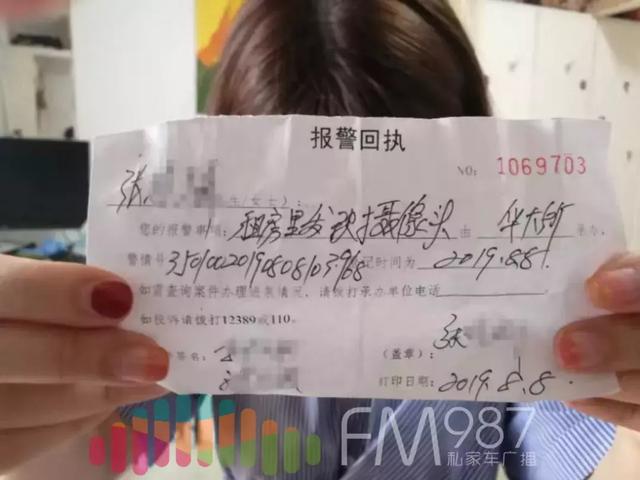 报警回执
NO: 1069703
张 生/女士）:
您的报警事项: 租房里发现摄像头 由 华大所 承办,
警情号 35010020190808103968 记时间为 2019.8.8.
如需查询案件办理进展情况，请拨打承办单位电话
如投诉请拨打12389或110。
签名: （盖章）:
打印日期: 2019.8.8.
FM987
私家车广播